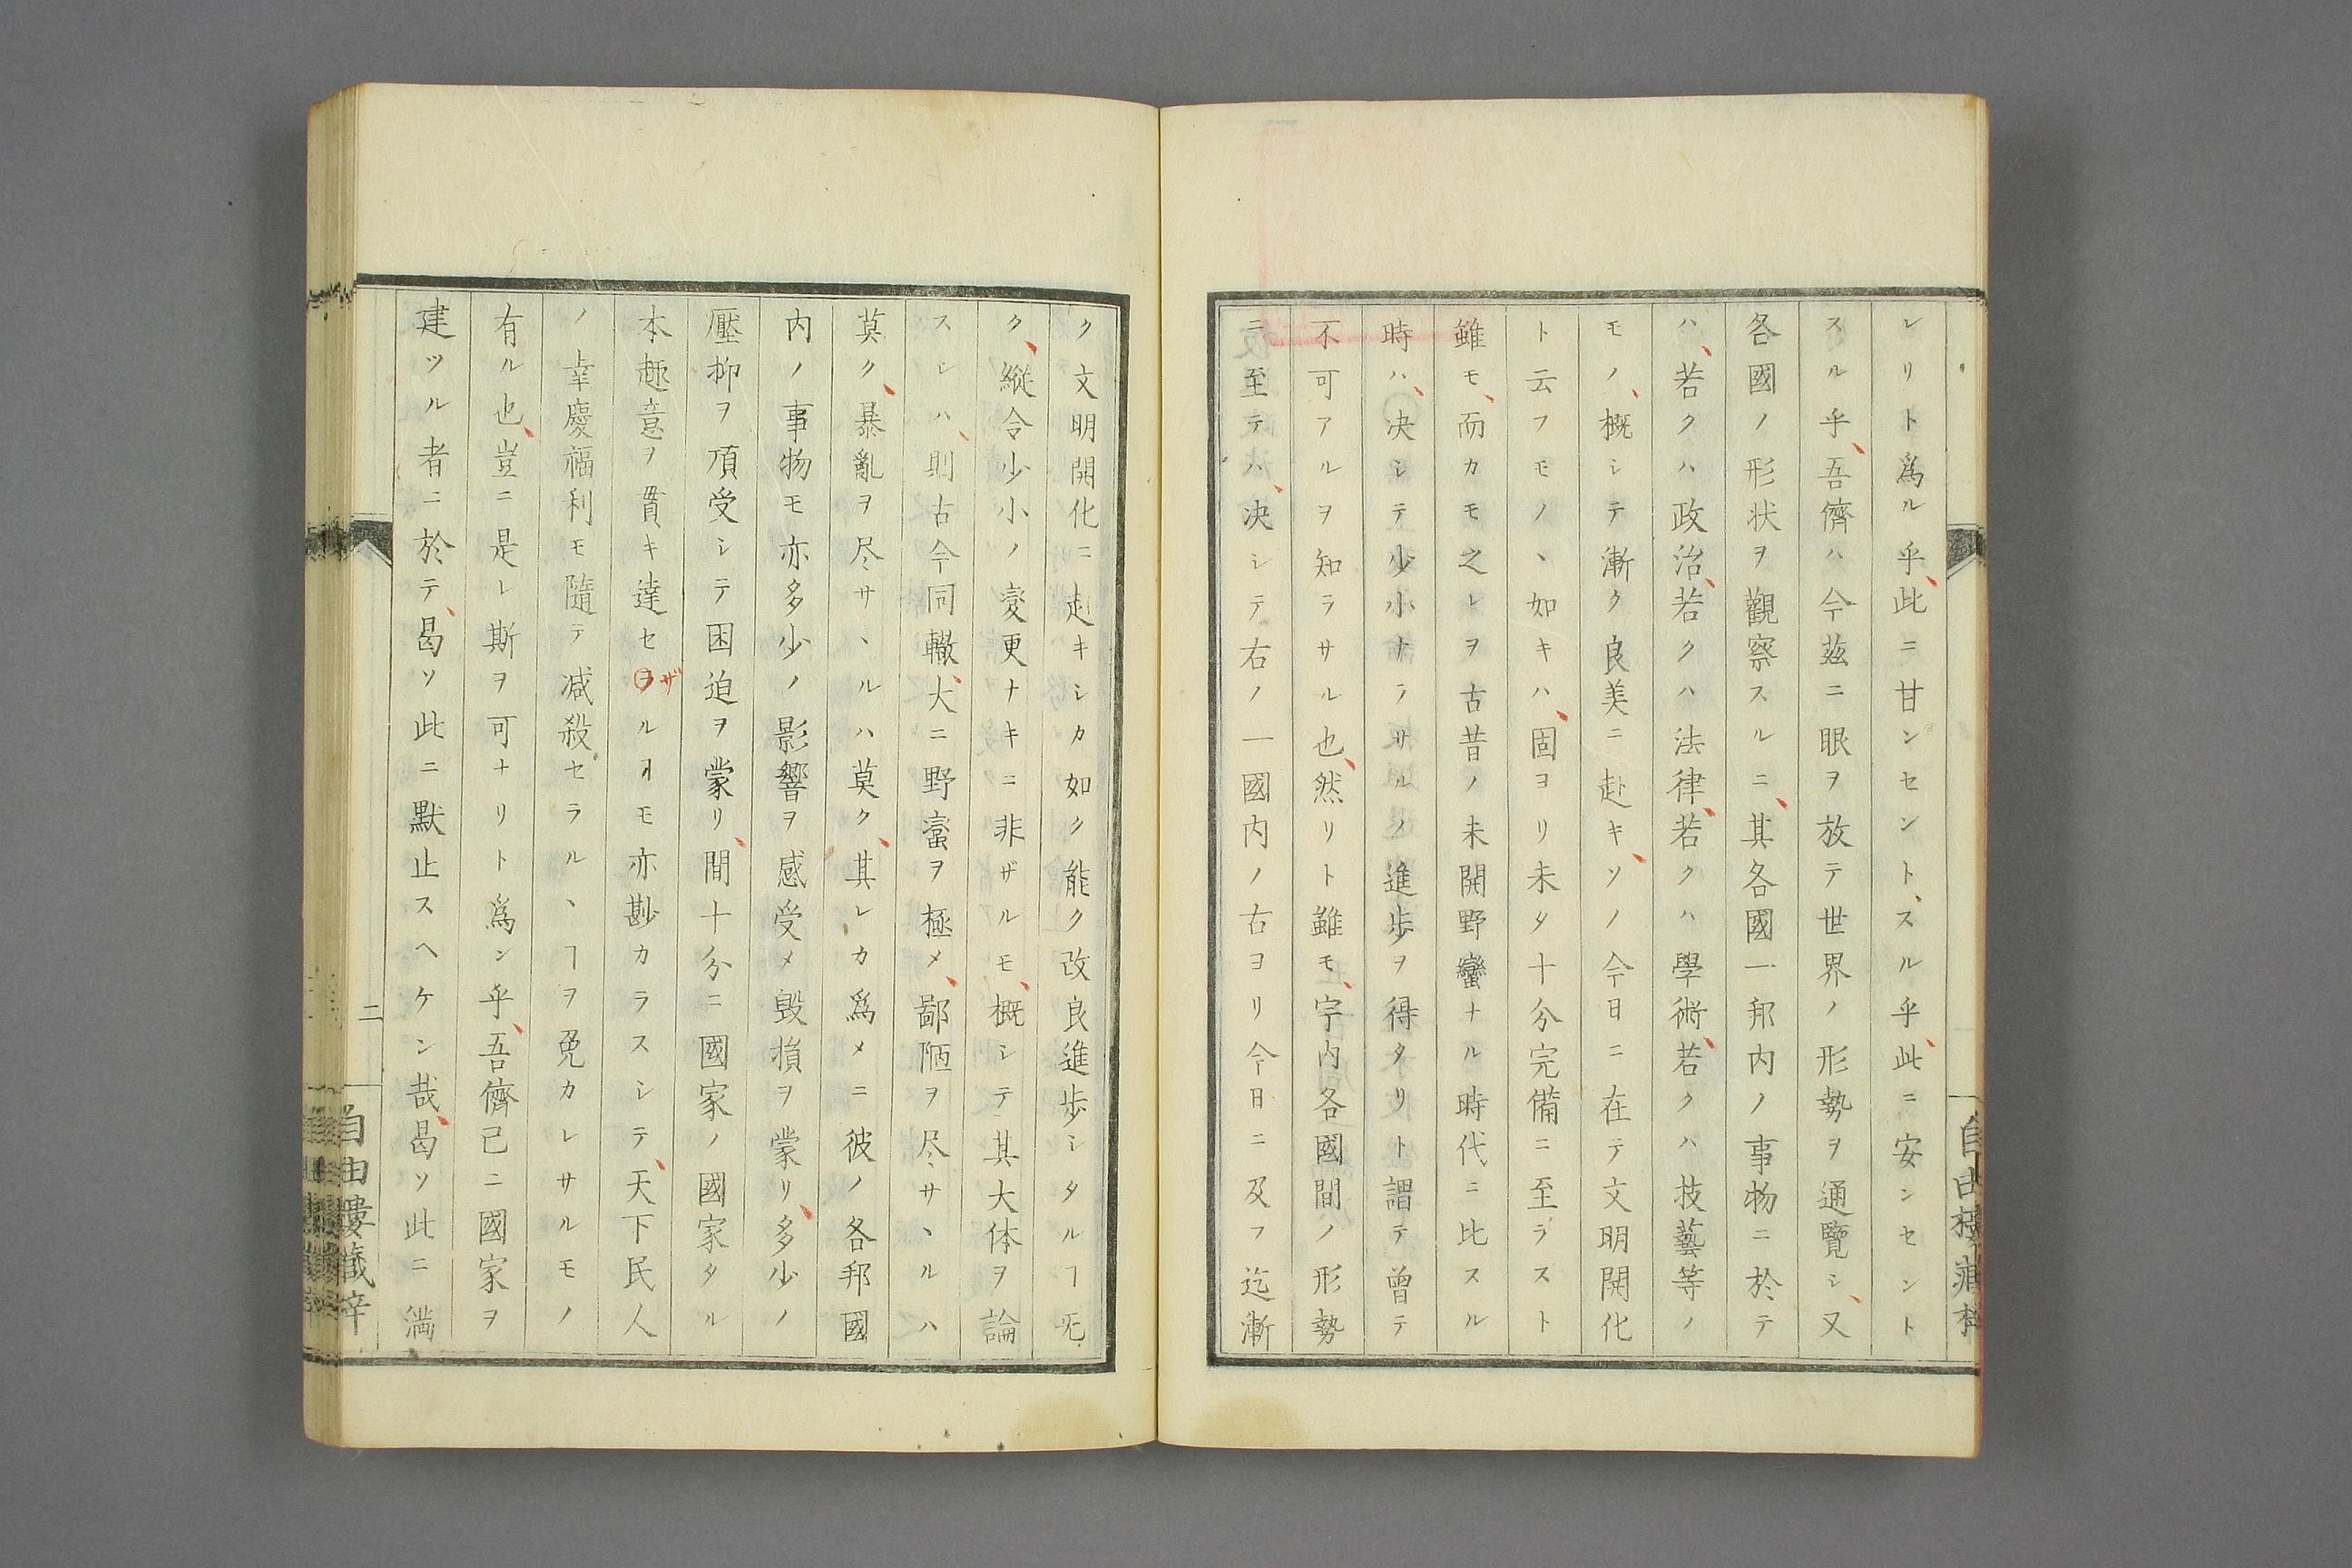 レリト爲ル乎、此ニ甘ンセント、スル乎、此ニ安ンセント
スル乎、吾儕ハ今茲ニ眼ヲ放テ世界ノ形勢ヲ通覽シ、又
各國ノ形状ヲ觀察スルニ、其各國一邦内ノ事物ニ於テ
ハ、若クハ政治、若クハ法律、若クハ學術、若クハ技藝等ノ
モノ、概シテ漸ク良美ニ赴キ、ソノ今日ニ在テ文明開化
ト云フモノヽ如キハ、固ヨリ未タ十分完備ニ至ラスト
雖モ、而カモ之レヲ古昔ノ未開野蠻ナル時代ニ比スル
時ハ、决シテ少小ナラサルノ進歩ヲ得タリト謂テ曾テ
不可アルヲ知ラサル也、然リト雖モ、宇内各國間ノ形勢
ニ至テハ、决シテ右ノ一國内ノ右ヨリ今日ニ及フ迄漸
自由樓藏梓
ク文明開化ニ赴キシカ如ク能ク改良進歩シタルヿ无
ク、縦令少小ノ変更ナキニ非ザルモ、概シテ其大体ヲ論
スレハ、則古今同轍、大ニ野蛮ヲ極メ、鄙陋ヲ尽サヽルハ
莫ク、暴亂ヲ尽サヽルハ莫ク、其レカ爲メニ彼ノ各邦國
内ノ事物モ亦多少ノ影響ヲ感受メ毀損ヲ蒙リ、多少ノ
壓抑ヲ頂受シテ困迫ヲ蒙リ、間十分ニ國家ノ國家タル
本趣意ヲ貫キ達セヲザルヿモ亦尠カラスシテ、天下民人
ノ幸慶福利モ隨テ减殺セラルヽヿヲ免カレサルモノ
有ル也、豈ニ是レ斯ヲ可ナリト爲ン乎、吾儕已ニ國家ヲ
建ツル者ニ於テ、曷ソ此ニ默止スヘケン哉、曷ソ此ニ満
二
自由樓藏梓